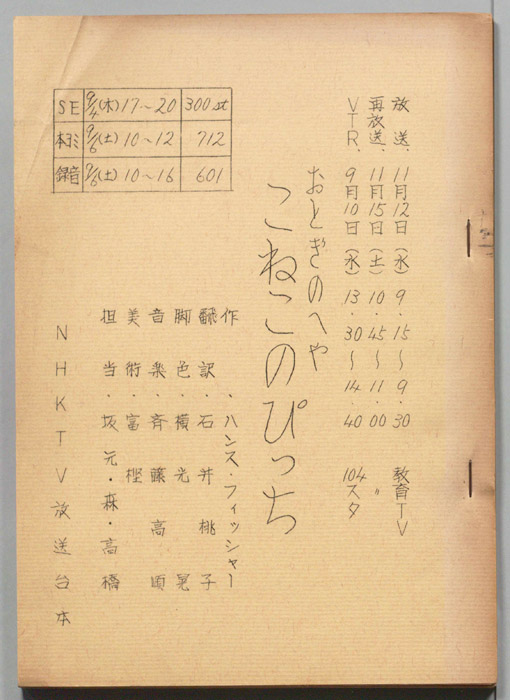 放送、11月12日(水) 9・15〜9・30 教育TV
再放送、11月15日(土) 10・45〜11・00 〃
VTR、9月10日(水) 13・30〜14・40 104スタ
おとぎのへや
こねこのぴっち
作、ハンス・フィッシャー
翻訳・石井桃子
脚色・横光晃
音楽・斉藤高順
美術・富樫
担当・坂元・森・高橋
NHKTV放送台本
SE 9/4(木)17〜20 300st
本ヨミ 9/6(土)10〜12 712
録音 9/6(土)10〜16 601